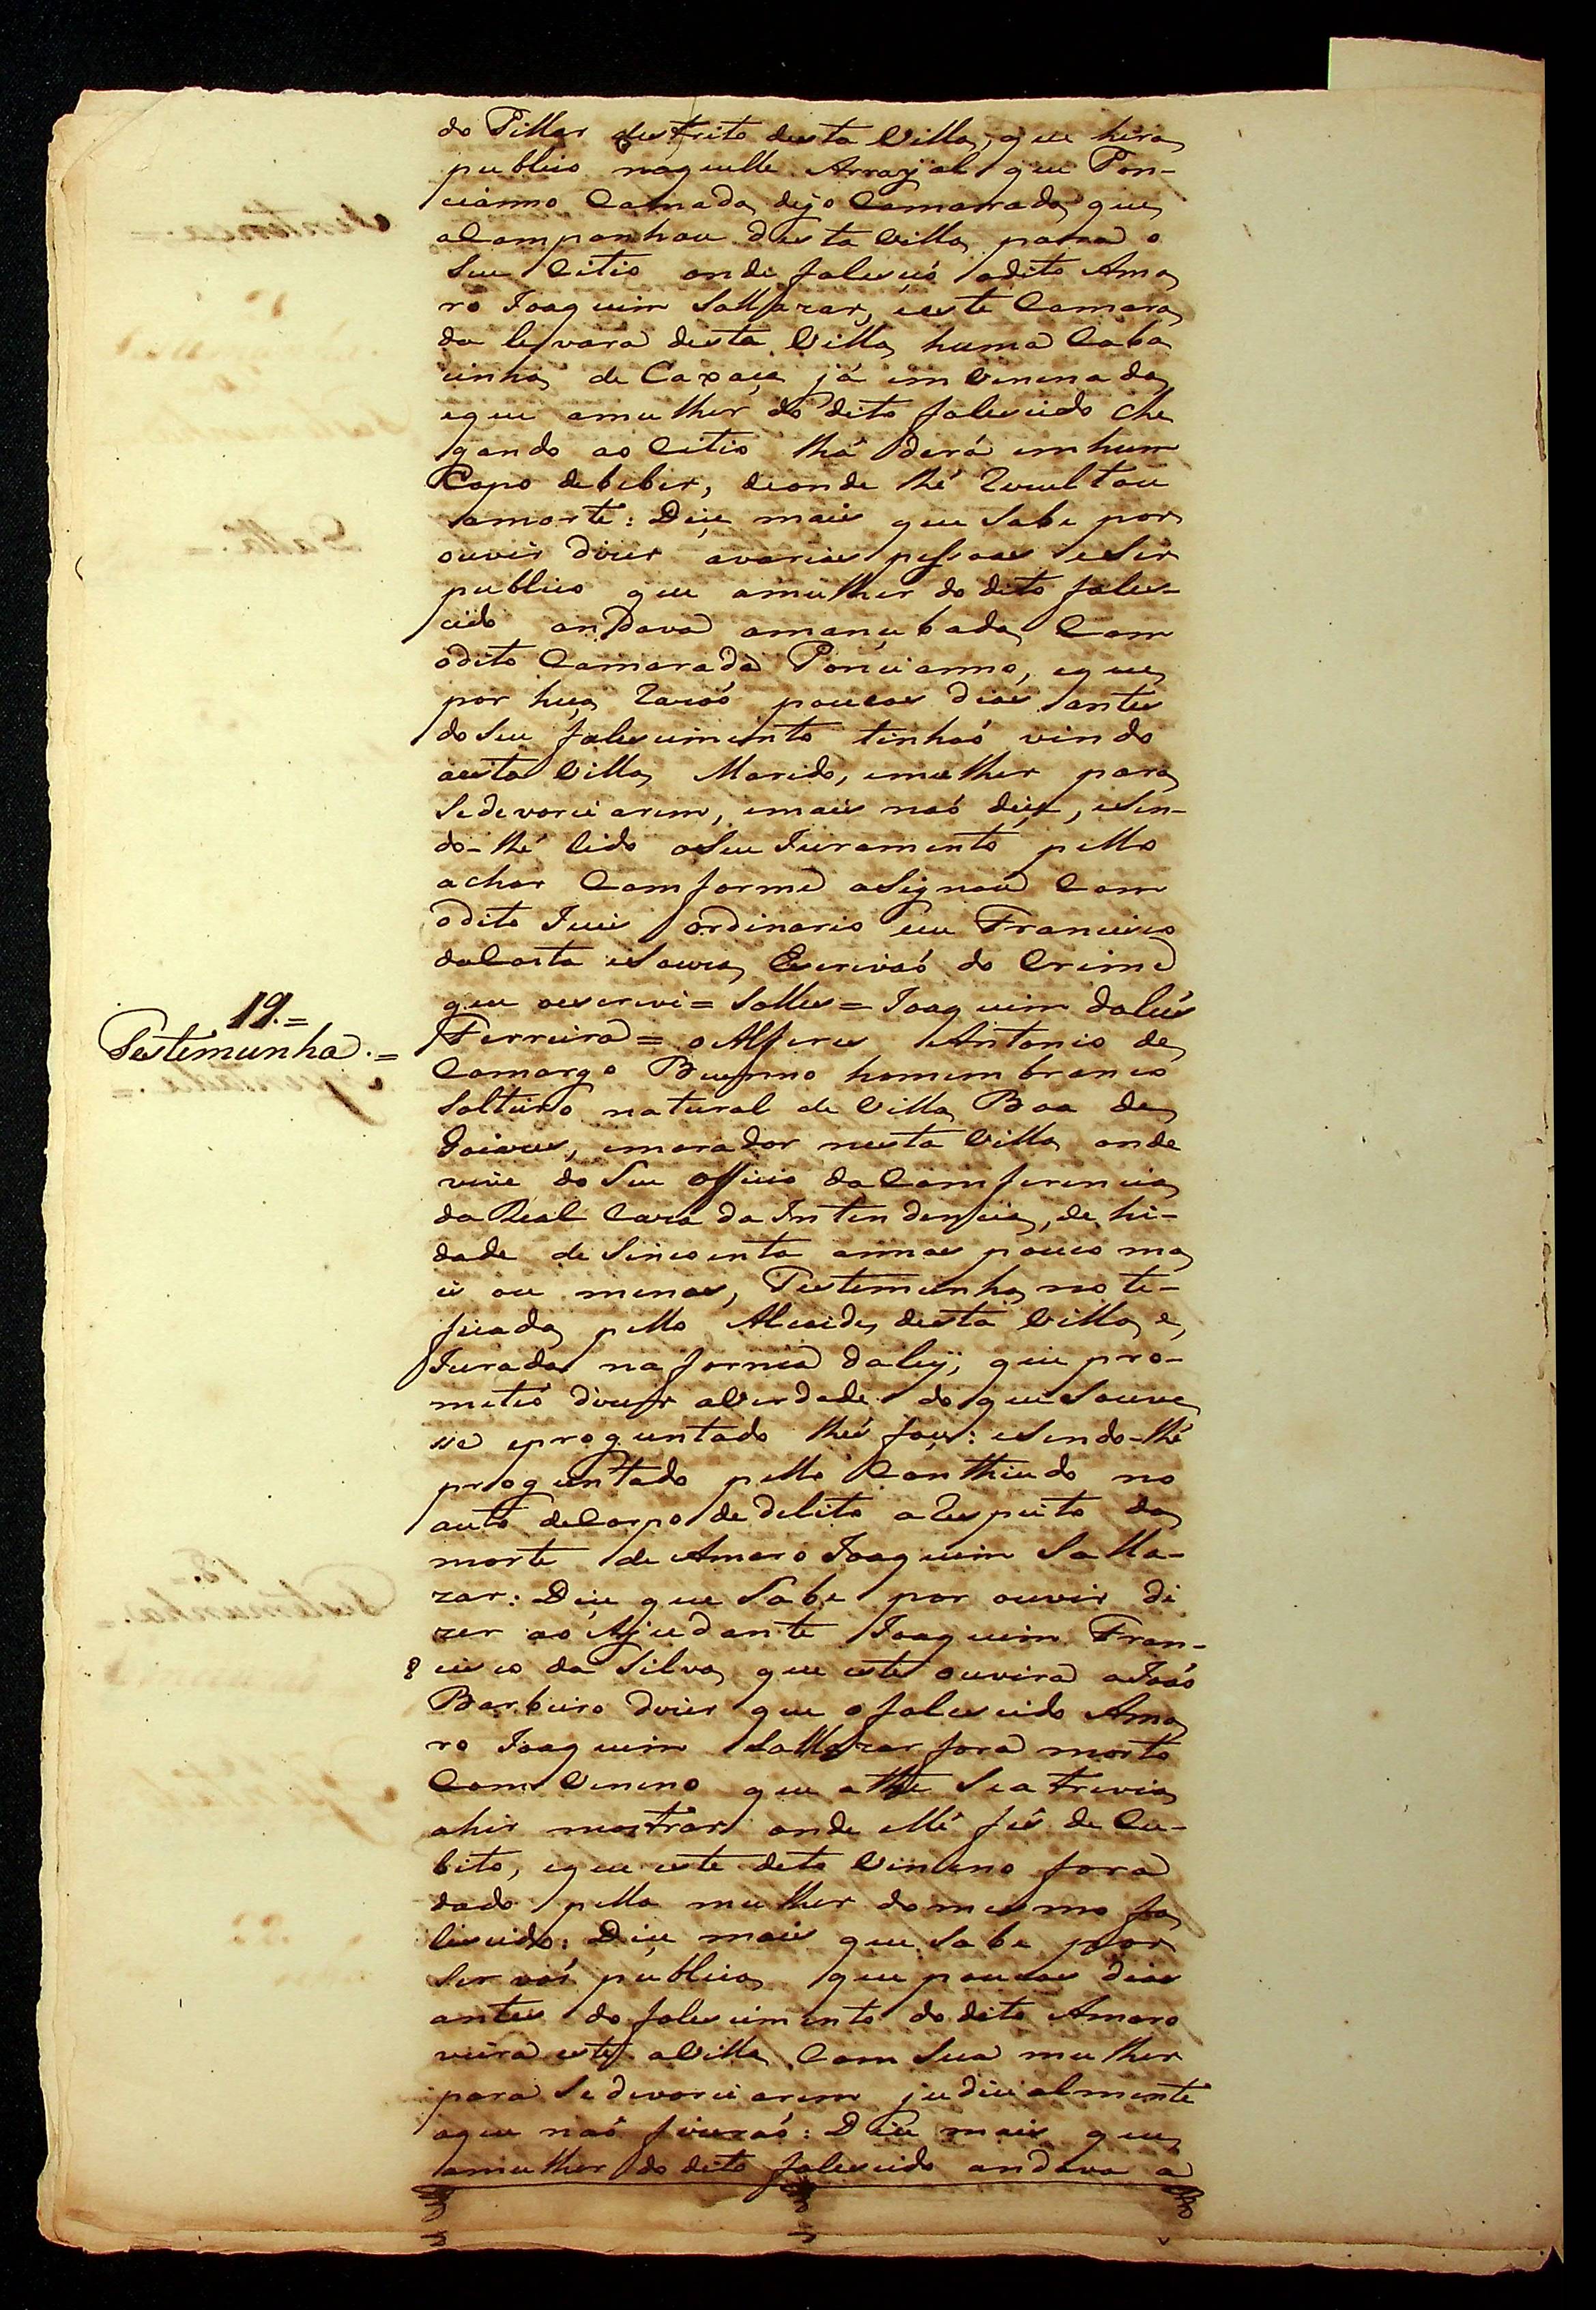 do Pillar destrito desta Villa, que hera
publico naquelle Arrayal que Pon-
cianno Camada, digo Camarada que
acompanhou desta Villa para o
seu Citio onde faleceó odito Ama
ro Joaquim Sallazar, e este Camara
da levara desta Villa huma Caba
cinha de Caxaça já invenenada
eque amulher do dito falecido che
gando ao Citio lhá dera emhum
Copo debeber, deonde lhé Rezultou
amorte: Dice mais que sabe por
ouvir dizer avarias pessoas eser
publico que amulher do dito fales-
cido andava amancebada Com
odito Camarada Poncianno, eque
por hua Razaó poucos dias antes
doseu falescimento tinhaó vindo
aesta Villa, Marido, emulher para
Sedevorciarem, emais naó dice, esen-
do-lhé lido oSeu Juramento pello
achar Comforme aSignou Com
odito Juis ordinario eu Francisco
daCosta eSouza Escrivaó do Crime
que oescrevi = Salles = Joaquim daLús
Ferreira = oAlferes Antonio de
19.=
Testemunha.=
Camargo Buenno homem branco
Solteiro natural de Villa Boa de
Goiazes, emorador nesta Villa onde
vive do Seu officio daComferencia
da Real Caza da Intendencia, de hi-
dade de Sincoenta annos pouco ma
is ou menos, Testemunha note-
ficada pello Alcaide desta Villa e
Jurada na forma daley, que pro-
meteó dizer aVerdade do que Souve
se eproguntado lhé fose: eSendo-lhé
proguntado pello Conthiudo no
auto deCorpo de delito aRespeito da
morte de Amaro Joaquim Salla-
zar: Dice que Sabe por ouvir di
zer ao Ajudante Joaquim Fran-
cisco da Silva, que este ouvira aJoaó
Barbeiro dizer que ofalescido Ama
ro Joaquim Sallazar fora morto
Com Veneno que athe Seatrevia
ahir mostrar onde ellé fés deCu-
bito, eque este dito Veneno fora
dado pella mulher domesmo fa
lescido: Dice mais que Sabe por
Ser vós publica que poucos dias
antes do falescimento dodito Amaro
viera este aVilla Com Sua mulher
para Sedevorciarem judicialmente
oque naó fizeraó: Dice mais que
amulher do dito falescido andava a